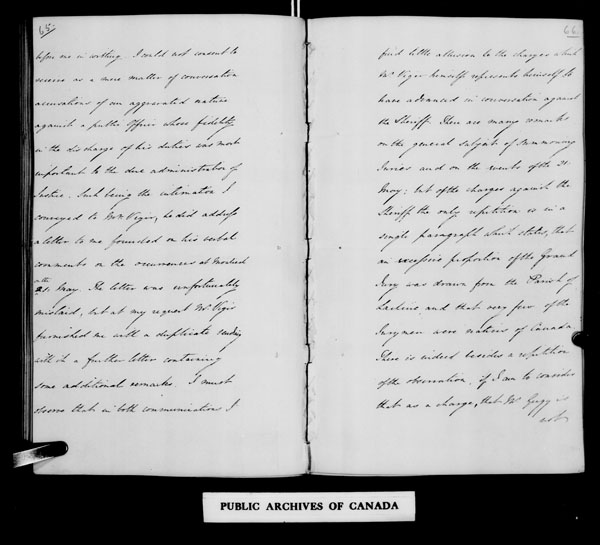 65.
before me in writing. I could not consent to
receive as a mere matter of conversation
accusations of an aggravated nature
against a public Officer whose fidelity
in the discharge of his duties was most
important to the due administration of
Justice. Such being the intimation I
conveyed to Mr. Viger, he did address
a letter to me founded on his verbal
comments on the occurrences at Montreal
on the
21. May. The letter was unfortunately
mislaid, but at my request Mr. Viger
furnished me with a duplicate sending
with it a further letter containing
some additional remarks. I must
observe that in both communications I
66.
find little allusion to the charges which
Mr. Viger himself represents himself to
have advanced in conversation against
the Sheriff. There are many remarks
on the general subject of summoning
Juries and on the events of the 21.
May; but of the charges against the
Sheriff the only repetition is in a
single paragraph which states, that
an excessive proportion of the Grand
Jury was drawn from the Parish of
Lachine, and that very few of the
Jurymen were natives of Canada.
There is indeed besides a repetition
of the observation, if I am to consider
that as a charge, that Mr. Gugy is
not
PUBLIC ARCHIVES OF CANADA